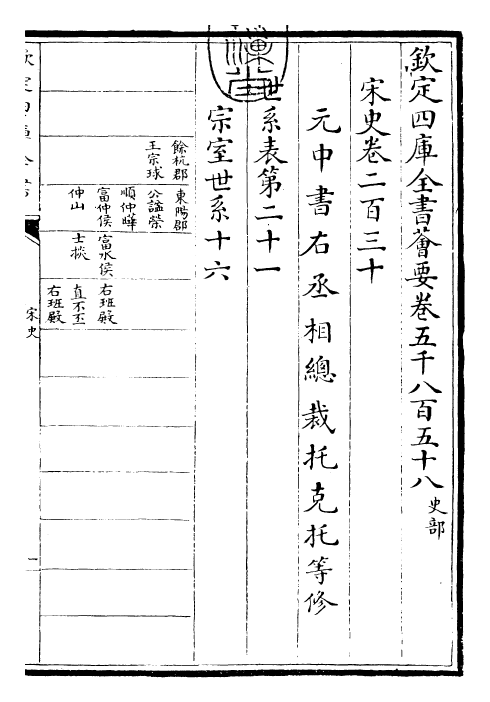 欽定四庫全書薈要卷五千八百五十八 史部
宋史卷二百三十
元中書右丞相總裁托克托等修
世系表第二十一
宗室世系十六
餘杭郡
王宗球
東陽郡
公諡榮
順仲曄
富仲侯
仲山
富水侯
士
右班殿
直不丕
右班殿
宋史
一